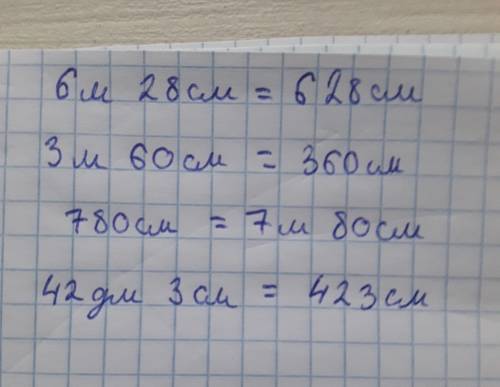 6м 28см = 628см
3м 60см = 360см
780см = 7м 80см
42дм 3см = 423см